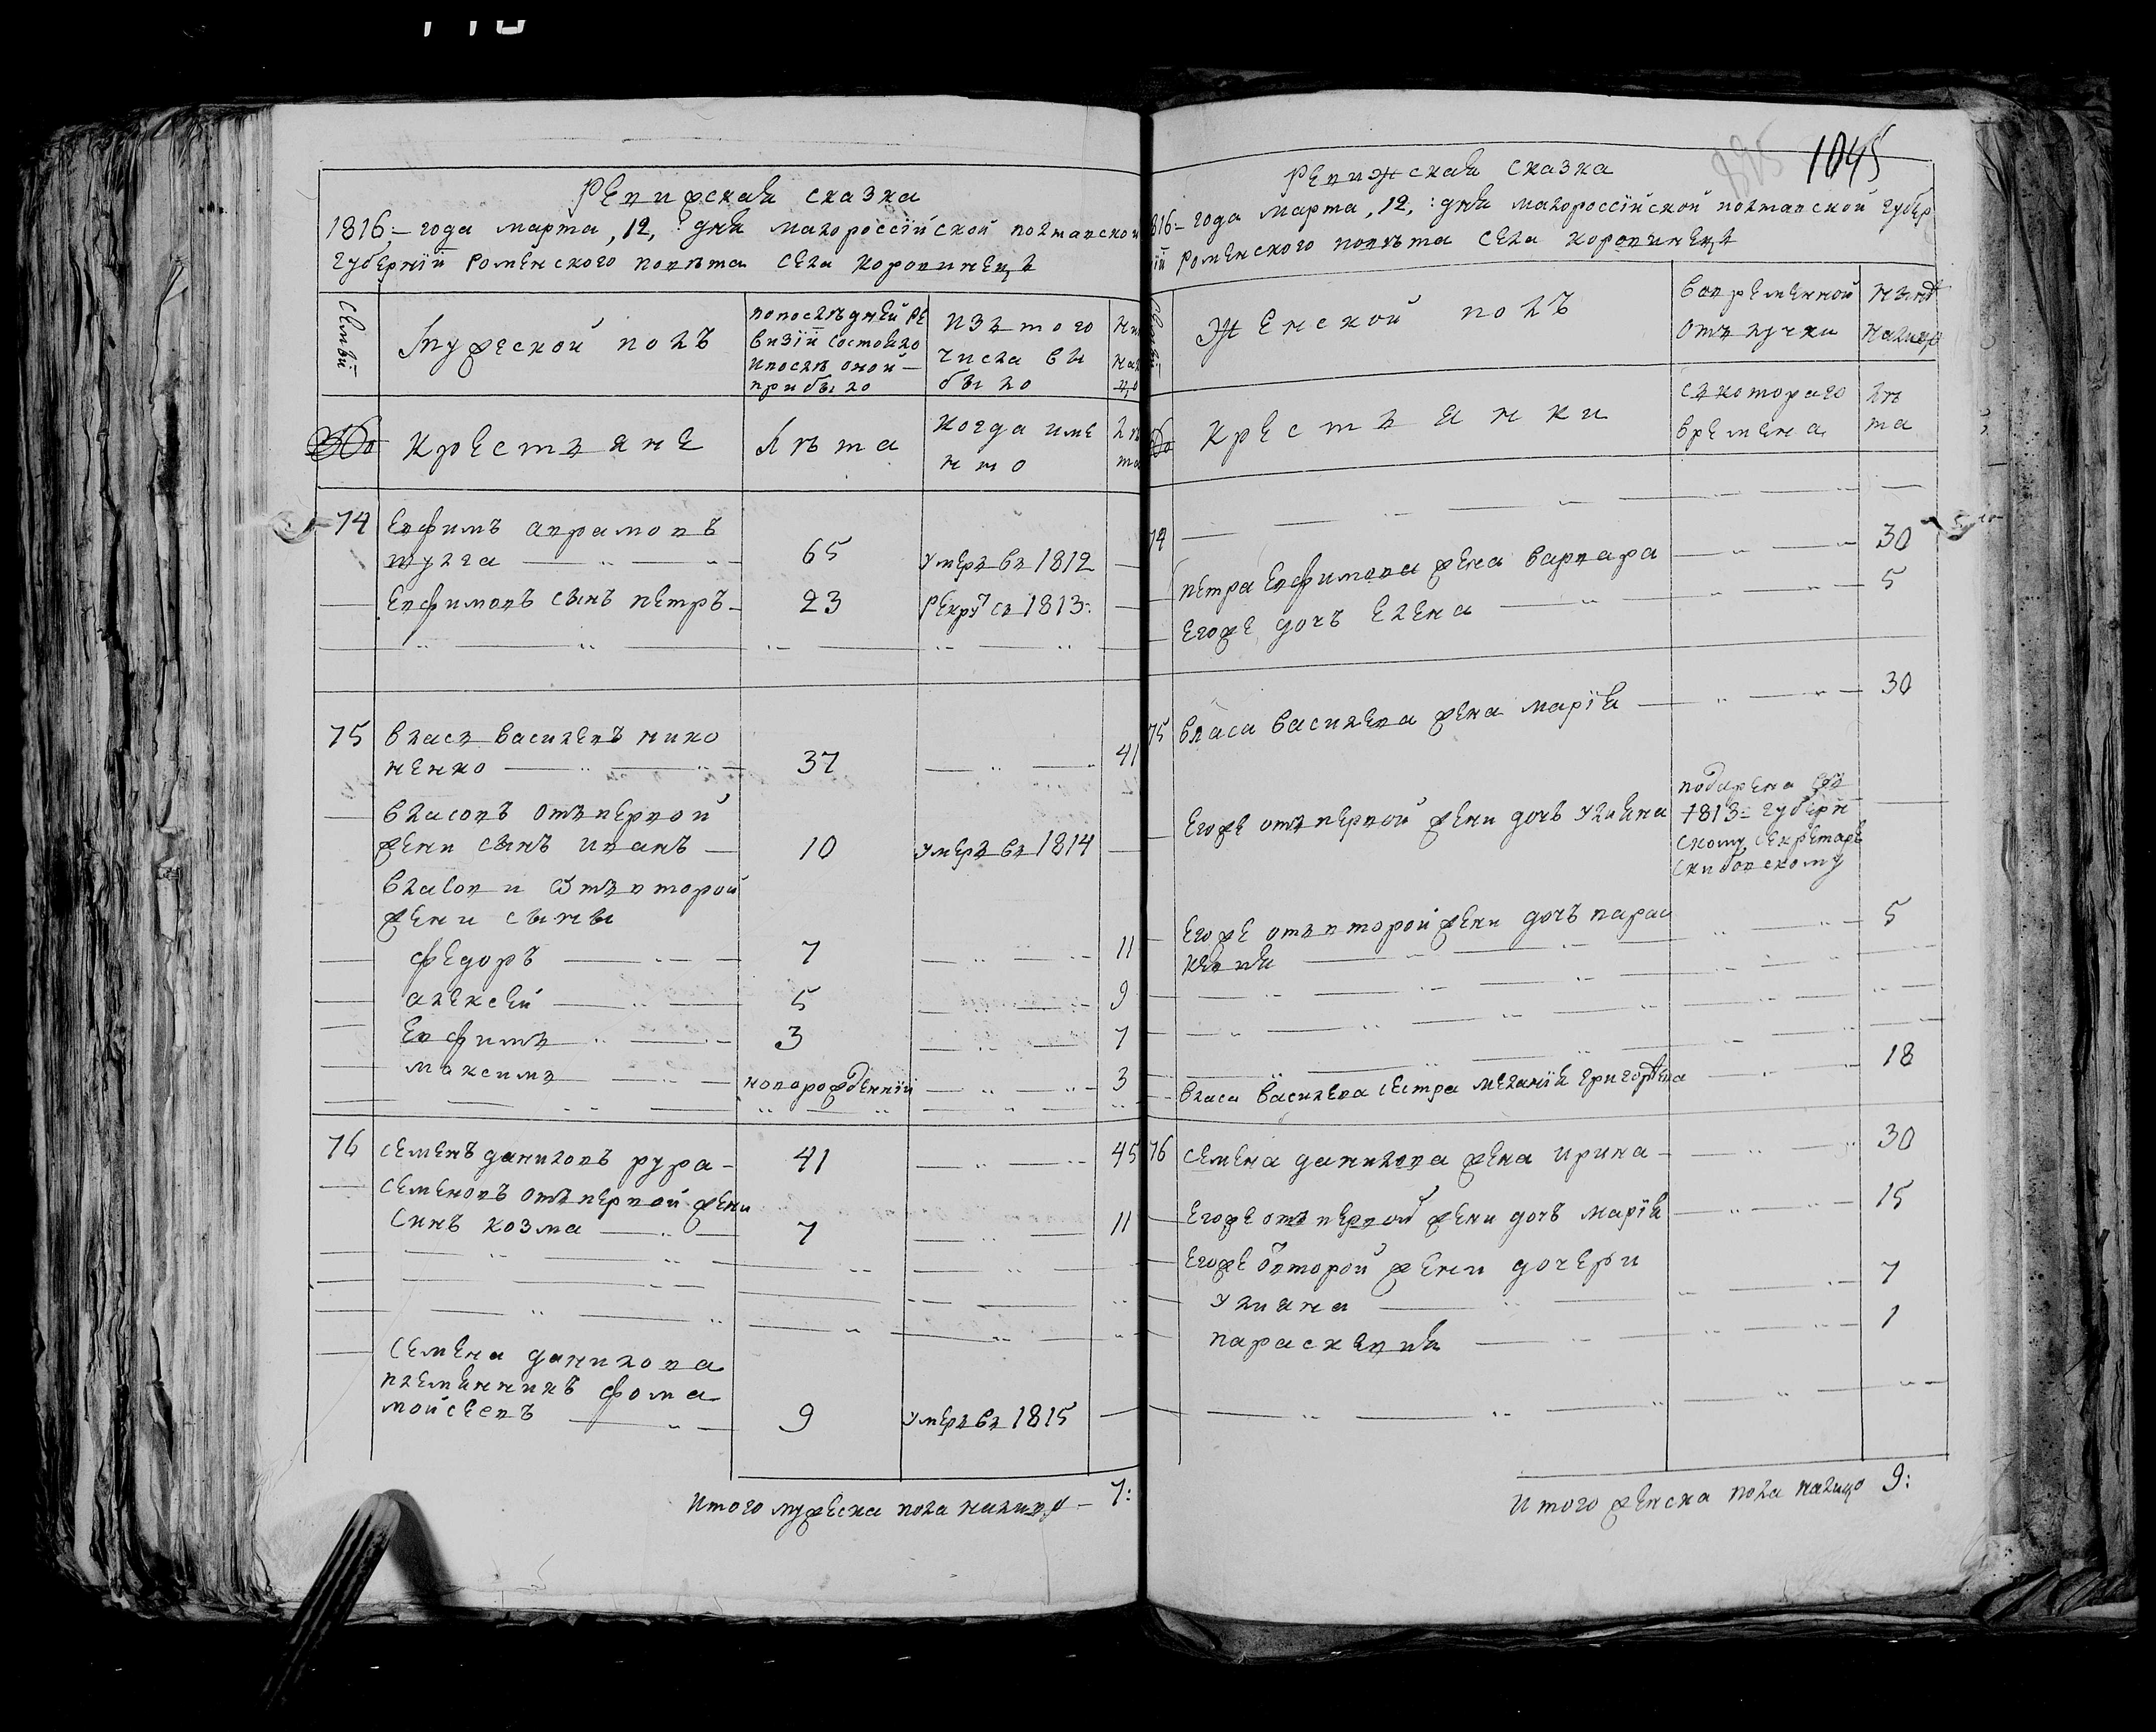 1045
Ревижская сказка
1816 – года марта, 12, : дня малороссїйской полтавской
губернїй роменского повѣта села коровинецъ
Семьи
мужеской полъ
попослѣдней ре
визїй состояло
ипослѣ оной
прибыло
изъ того
числа вы
было
№
крестьяне
лѣта
когда име
нно
лѣ
та
74
Евфимъ аврамовъ
шулга
65
умеръ въ 1812
Евфимовъ сынъ петръ
23
рекру съ 1813:
75
власъ васильевъ нико
ненко
37
41
власовъ отъ первой
жени сынъ иванъ
10
умеръ въ 1814
власови отъ второй
жени сыны
федоръ
7
11
алексей
5
9
Евфимъ
3
7
максимъ
новорожденнїй
3
76
семенъ даниловъ рура
41
45
семеновъ отъ первой жени
синъ козма
7
11
семена данилова
племянникъ фома
мойсеевъ
9
умеръ въ 1815
итого мужеска пола налицо – 7:
Ревижская сказка
816 – года марта, 12, : дня малороссїйской полтавской губер
їй роменского повѣта села коровинецъ
Женской полъ
вовременной
отълучки
нынѣ
налицо
№
крестьянки
съкотораго
времена
лѣ
та
74
петра Евфимова жена варвара
30
Егоже дочъ Елена
5
75
власа васильева жена марїя
30
Егоже отъ первой жени дочъ улияна
подарена въ
1813 = губерн
скому секретарѣ
скибовскому
Егоже отъ второй жени дочъ парас
кевия
5
власа васильева сестра меланїя григорьева
18
76
семена данилова жена ирина
30
Егоже отъ первой жени дочъ марїя
15
Егоже второй жени дочери
улияна
7
параскевия
1
итого женска пола налицо 9: